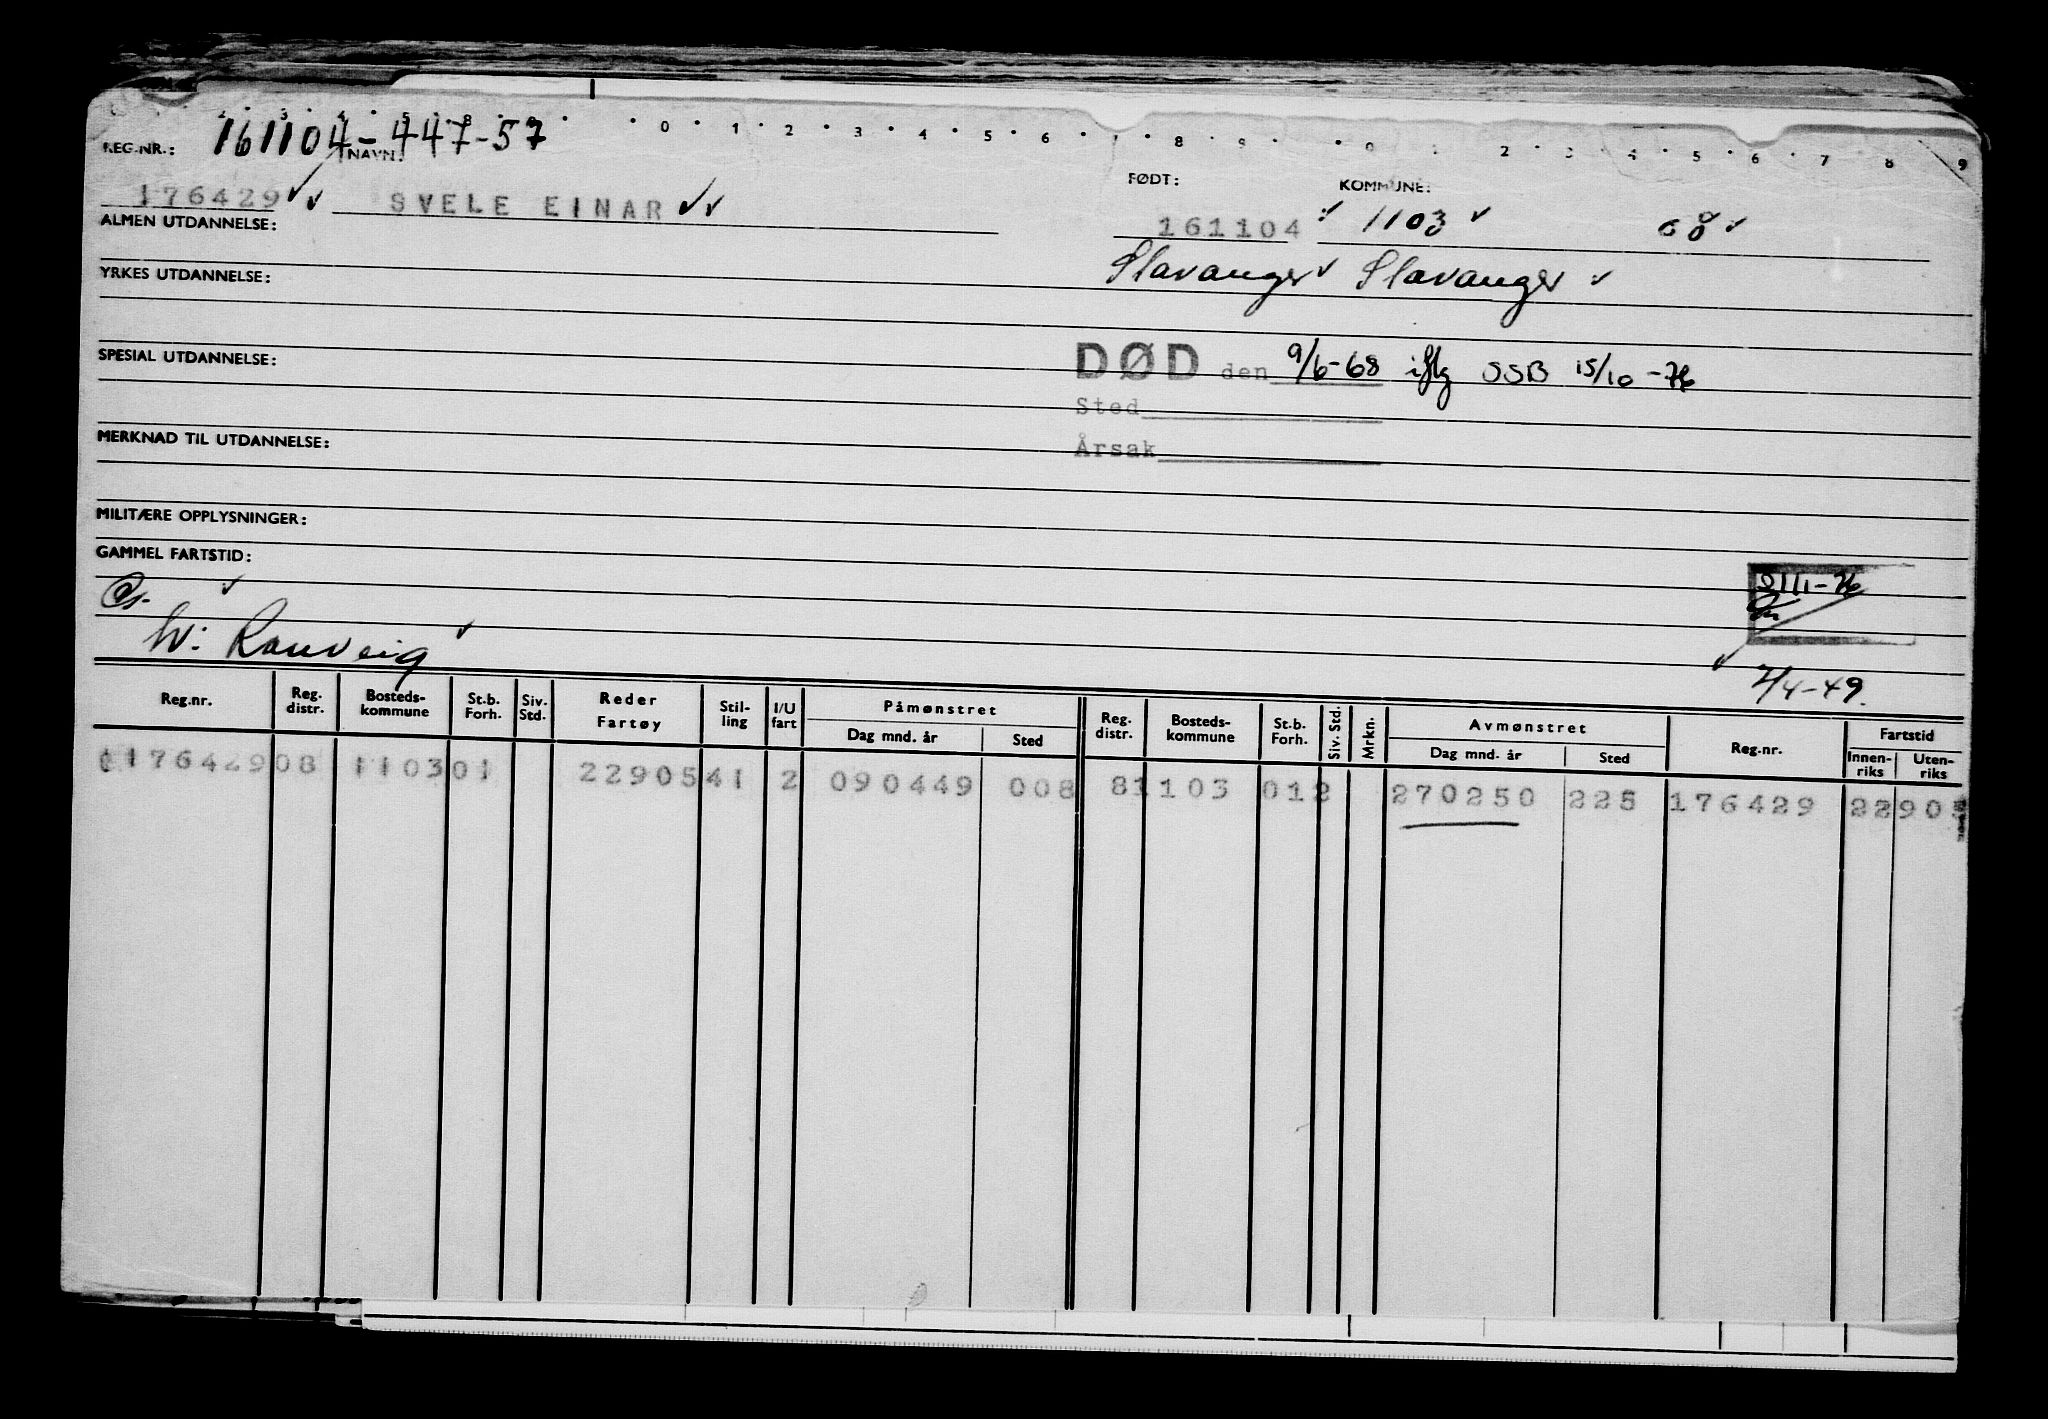 161104-447-57
0 1 2 3 4 5 6 7 8 9 0 1 2 3 4 5 6 7 8 9
REG.-NR.: NAVN: FØDT: KOMMUNE:
176429 SVELE EINAR 161104 1103
ALMEN UTDANNELSE:
Stavanger Stavanger
YRKES UTDANNELSE:
SPESIAL UTDANNELSE:
DØD den 9/6-68 iflg SSB 15/10-76
Sted
MERKNAD TIL UTDANNELSE:
Årsak
MILITÆRE OPPLYSNINGER:
GAMMEL FARTSTID:
W: Ranveig
7/4-49.
Reg.nr. Reg. distr. Bosteds-kommune St.b. Forh. Siv. Std. Reder Fartøy Stil-ling I/U fart Påmønstret Dag mnd. år Sted Reg. distr. Bosteds-kommune St.b. Forh. Siv. Std. Mrkn. Avmønstret Dag mnd. år Sted Reg.nr. Fartstid Innen-riks Uten-riks
176429 08 1103 01 22905 41 2 090449 008 8 1103 01 2 270250 225 176429 22905